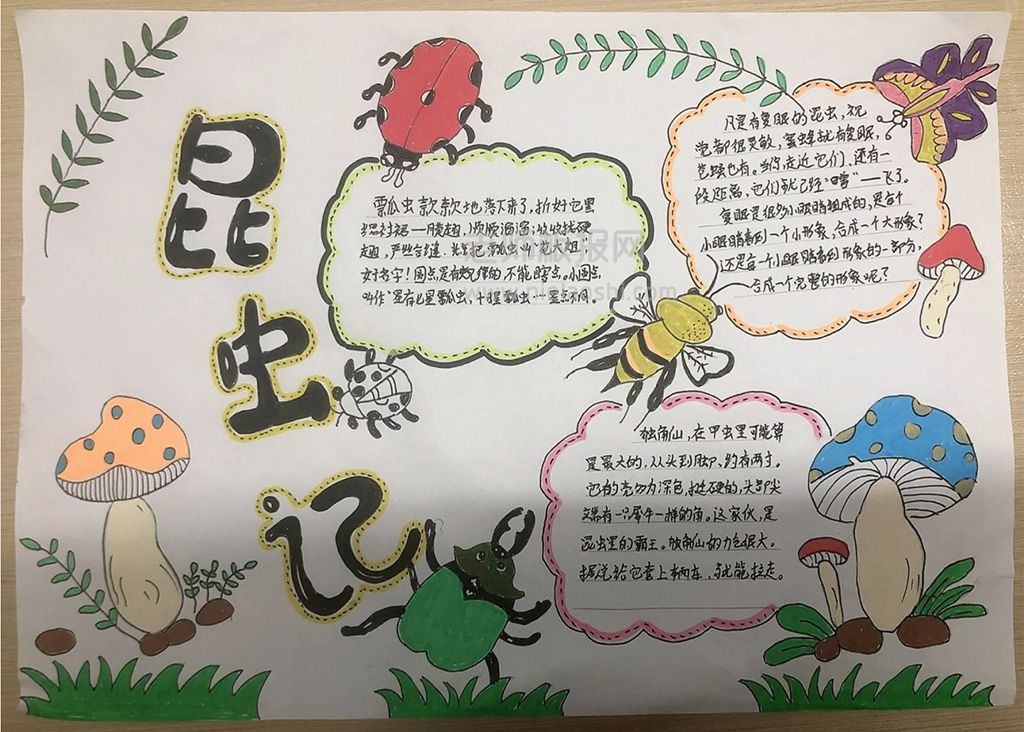 昆虫记
瓢虫款款地落下来了,折好它黑
趣,严丝合缝.光管它“瓢虫”叫“花大姐”,
好名字!圆点,是有规律的,不能瞎点。小圆点,
叫作“星”有七星瓢虫,十四星瓢虫……星点不同。
凡是有复眼的昆虫,视
觉都很灵敏,蜜蜂就有复眼,
也有。当你走近它们,还有一
段距离,它们就已经“嗡”——飞了。
复眼是很多小眼睛组成的,是每个
小眼睛看到一个小形象,合成一个大形象?
还是每一个小眼睛看到形象的一部分,
合成一个完整的形象呢?
独角仙,在甲虫里可能算
是最大的,从头到脚,约有两寸。
它的壳多为深色,挺硬的,头部尖
端有一只犀牛一样的角。这家伙,是
昆虫里的霸王。独角仙的力气很大。
据说给它套上辆车,就能拉走。